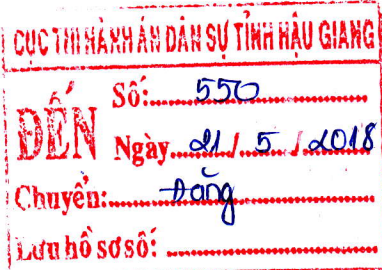 CỤC THI HÀNH ÁN DÂN SỰ TỈNH HẬU GIANG
ĐẾN
Số: 550
Ngày 21 / 5 / 2018
Chuyển: Đăng
Lưu hồ sơ số: